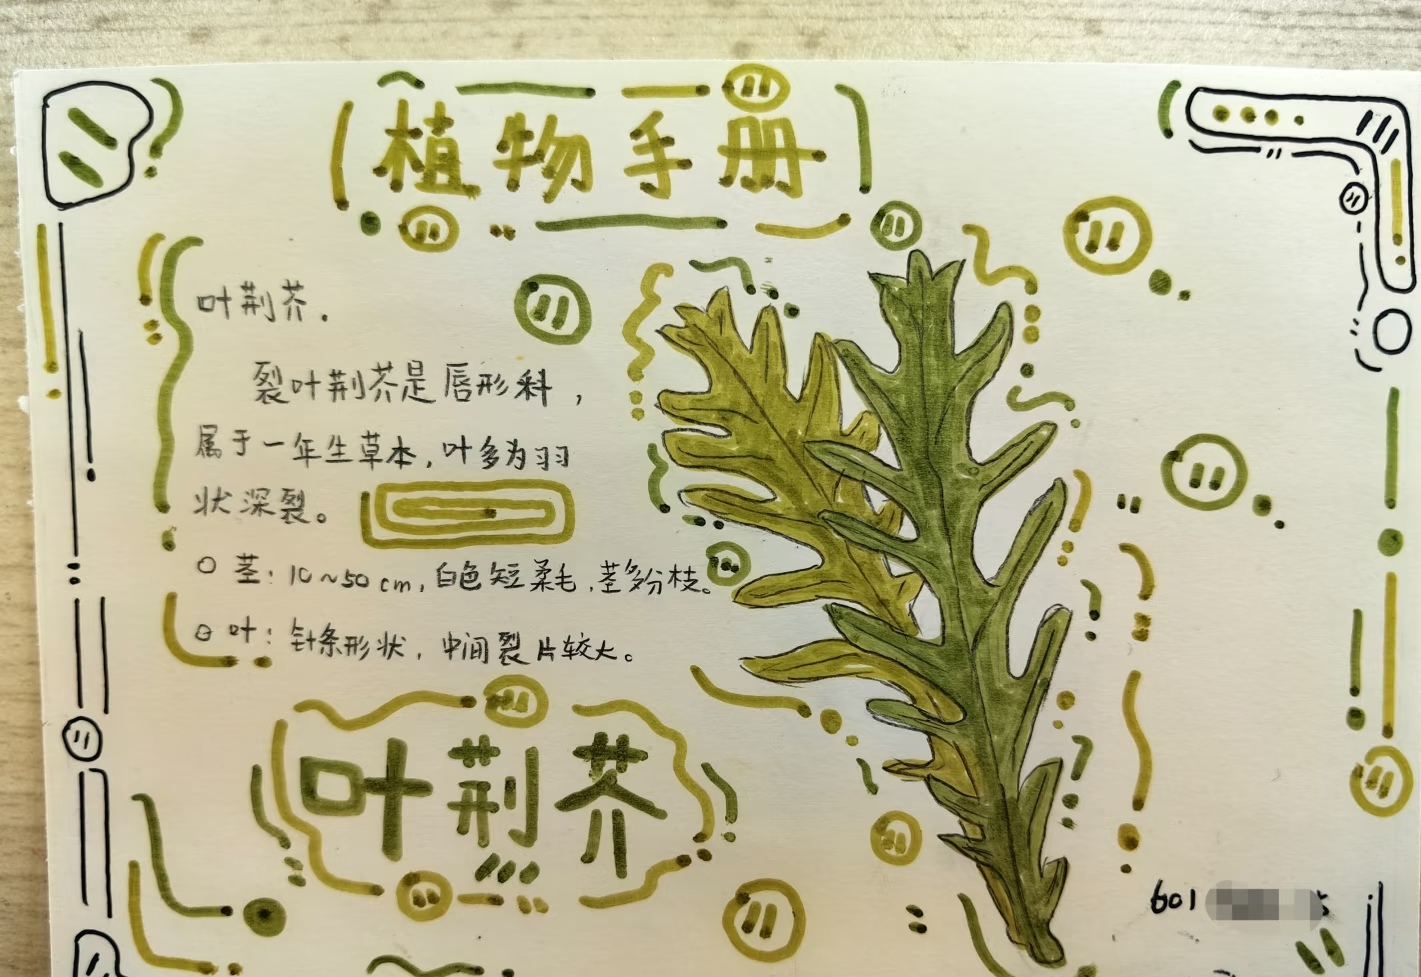 植物手册
叶荆芥.
裂叶荆芥是唇形科，
属于一年生草本，叶多为羽
状深裂。
○ 茎：10~50cm，白色短柔毛，茎多分枝。
⊖ 叶：针条形状，中间裂片较大。
叶荆芥
601